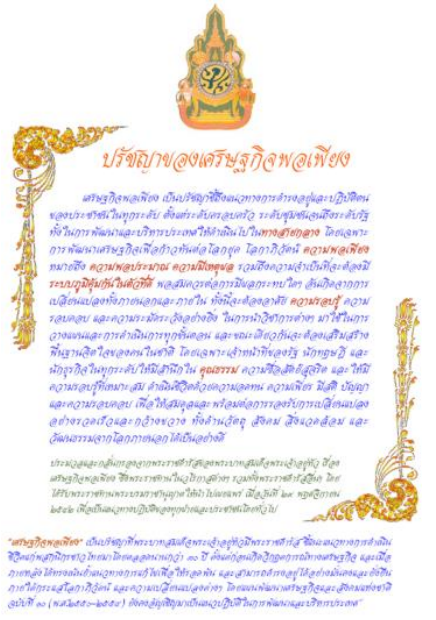 ปรัชญาของเศรษฐกิจพอเพียง
เศรษฐกิจพอเพียง เป็นปรัชญาชี้ถึงแนวทางการดำรงอยู่และปฏิบัติตน
ของประชาชนในทุกระดับ ตั้งแต่ระดับครอบครัว ระดับชุมชนจนถึงระดับรัฐ
ทั้งในการพัฒนาและบริหารประเทศให้ดำเนินไปในทางสายกลาง โดยเฉพาะ
การพัฒนาเศรษฐกิจเพื่อก้าวทันต่อโลกยุค โลกาภิวัตน์ ความพอเพียง
หมายถึง ความพอประมาณ ความมีเหตุผล รวมถึงความจำเป็นที่จะต้องมี
ระบบภูมิคุ้มกันในตัวที่ดี พอสมควรต่อการมีผลกระทบใดๆ อันเกิดจากการ
เปลี่ยนแปลงทั้งภายนอกและภายใน ทั้งนี้จะต้องอาศัย ความรอบรู้ ความ
รอบคอบ และความระมัดระวังอย่างยิ่ง ในการนำวิชาการต่างๆ มาใช้ในการ
วางแผนและการดำเนินการทุกขั้นตอน และขณะเดียวกันจะต้องเสริมสร้าง
พื้นฐานจิตใจของคนในชาติ โดยเฉพาะเจ้าหน้าที่ของรัฐ นักทฤษฎี และ
นักธุรกิจในทุกระดับให้มีสำนึกใน คุณธรรม ความซื่อสัตย์สุจริต และให้มี
ความรอบรู้ที่เหมาะสม ดำเนินชีวิตด้วยความอดทน ความเพียร มีสติ ปัญญา
และความรอบคอบ เพื่อให้สมดุลและพร้อมต่อการรองรับการเปลี่ยนแปลง
อย่างรวดเร็วและกว้างขวาง ทั้งด้านวัตถุ สังคม สิ่งแวดล้อม และ
วัฒนธรรมจากโลกภายนอกได้เป็นอย่างดี
ประมวลและกลั่นกรองจากพระราชดำรัสของพระบาทสมเด็จพระเจ้าอยู่หัว เรื่อง
เศรษฐกิจพอเพียง ซึ่งพระราชทานในวโรกาสต่างๆ รวมทั้งพระราชดำรัสอื่นๆ โดย
ได้รับพระราชทานพระบรมราชานุญาตให้นำไปเผยแพร่ เมื่อวันที่ ๒๙ พฤศจิกายน
๒๕๔๒ เพื่อเป็นแนวทางปฏิบัติของทุกฝ่ายและประชาชนโดยทั่วไป
"เศรษฐกิจพอเพียง" เป็นปรัชญาที่พระบาทสมเด็จพระเจ้าอยู่หัวมีพระราชดำรัส ชี้แนะแนวทางการดำเนิน
ชีวิตแก่พสกนิกรชาวไทยมาโดยตลอดนานกว่า ๓๐ ปี ตั้งแต่ก่อนเกิดวิกฤตการณ์ทางเศรษฐกิจ และเมื่อ
ภายหลังได้ทรงเน้นย้ำแนวทางการแก้ไขเพื่อให้รอดพ้น และสามารถดำรงอยู่ได้อย่างมั่นคงและยั่งยืน
ภายใต้กระแสโลกาภิวัตน์ และความเปลี่ยนแปลงต่างๆ โดยแผนพัฒนาเศรษฐกิจและสังคมแห่งชาติ
ฉบับที่ ๑๐ (พ.ศ.๒๕๕๐-๒๕๕๔) ยังคงอัญเชิญมาเป็นแนวปฏิบัติในการพัฒนาและบริหารประเทศ"